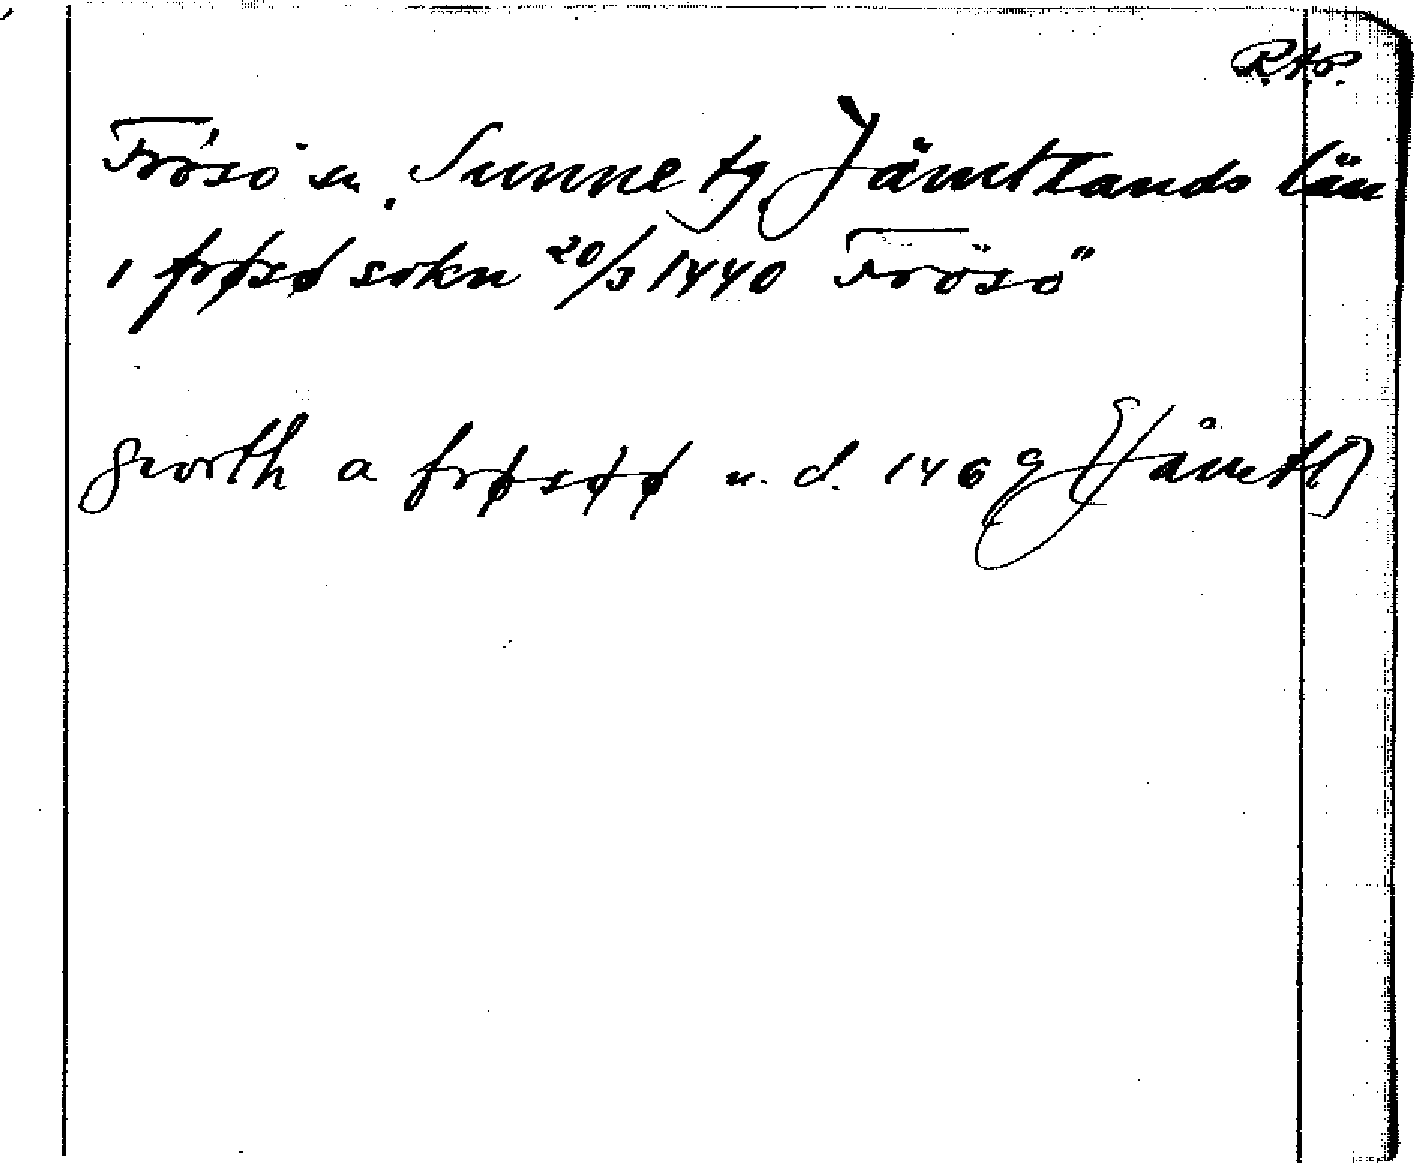 R.A.P.
Frösö sn. Sunne tg Jämtlands län
i frøsø sokn 20/3 1440 Frösö
giorth a frøsøø u. d. 1469 (Jämtl)